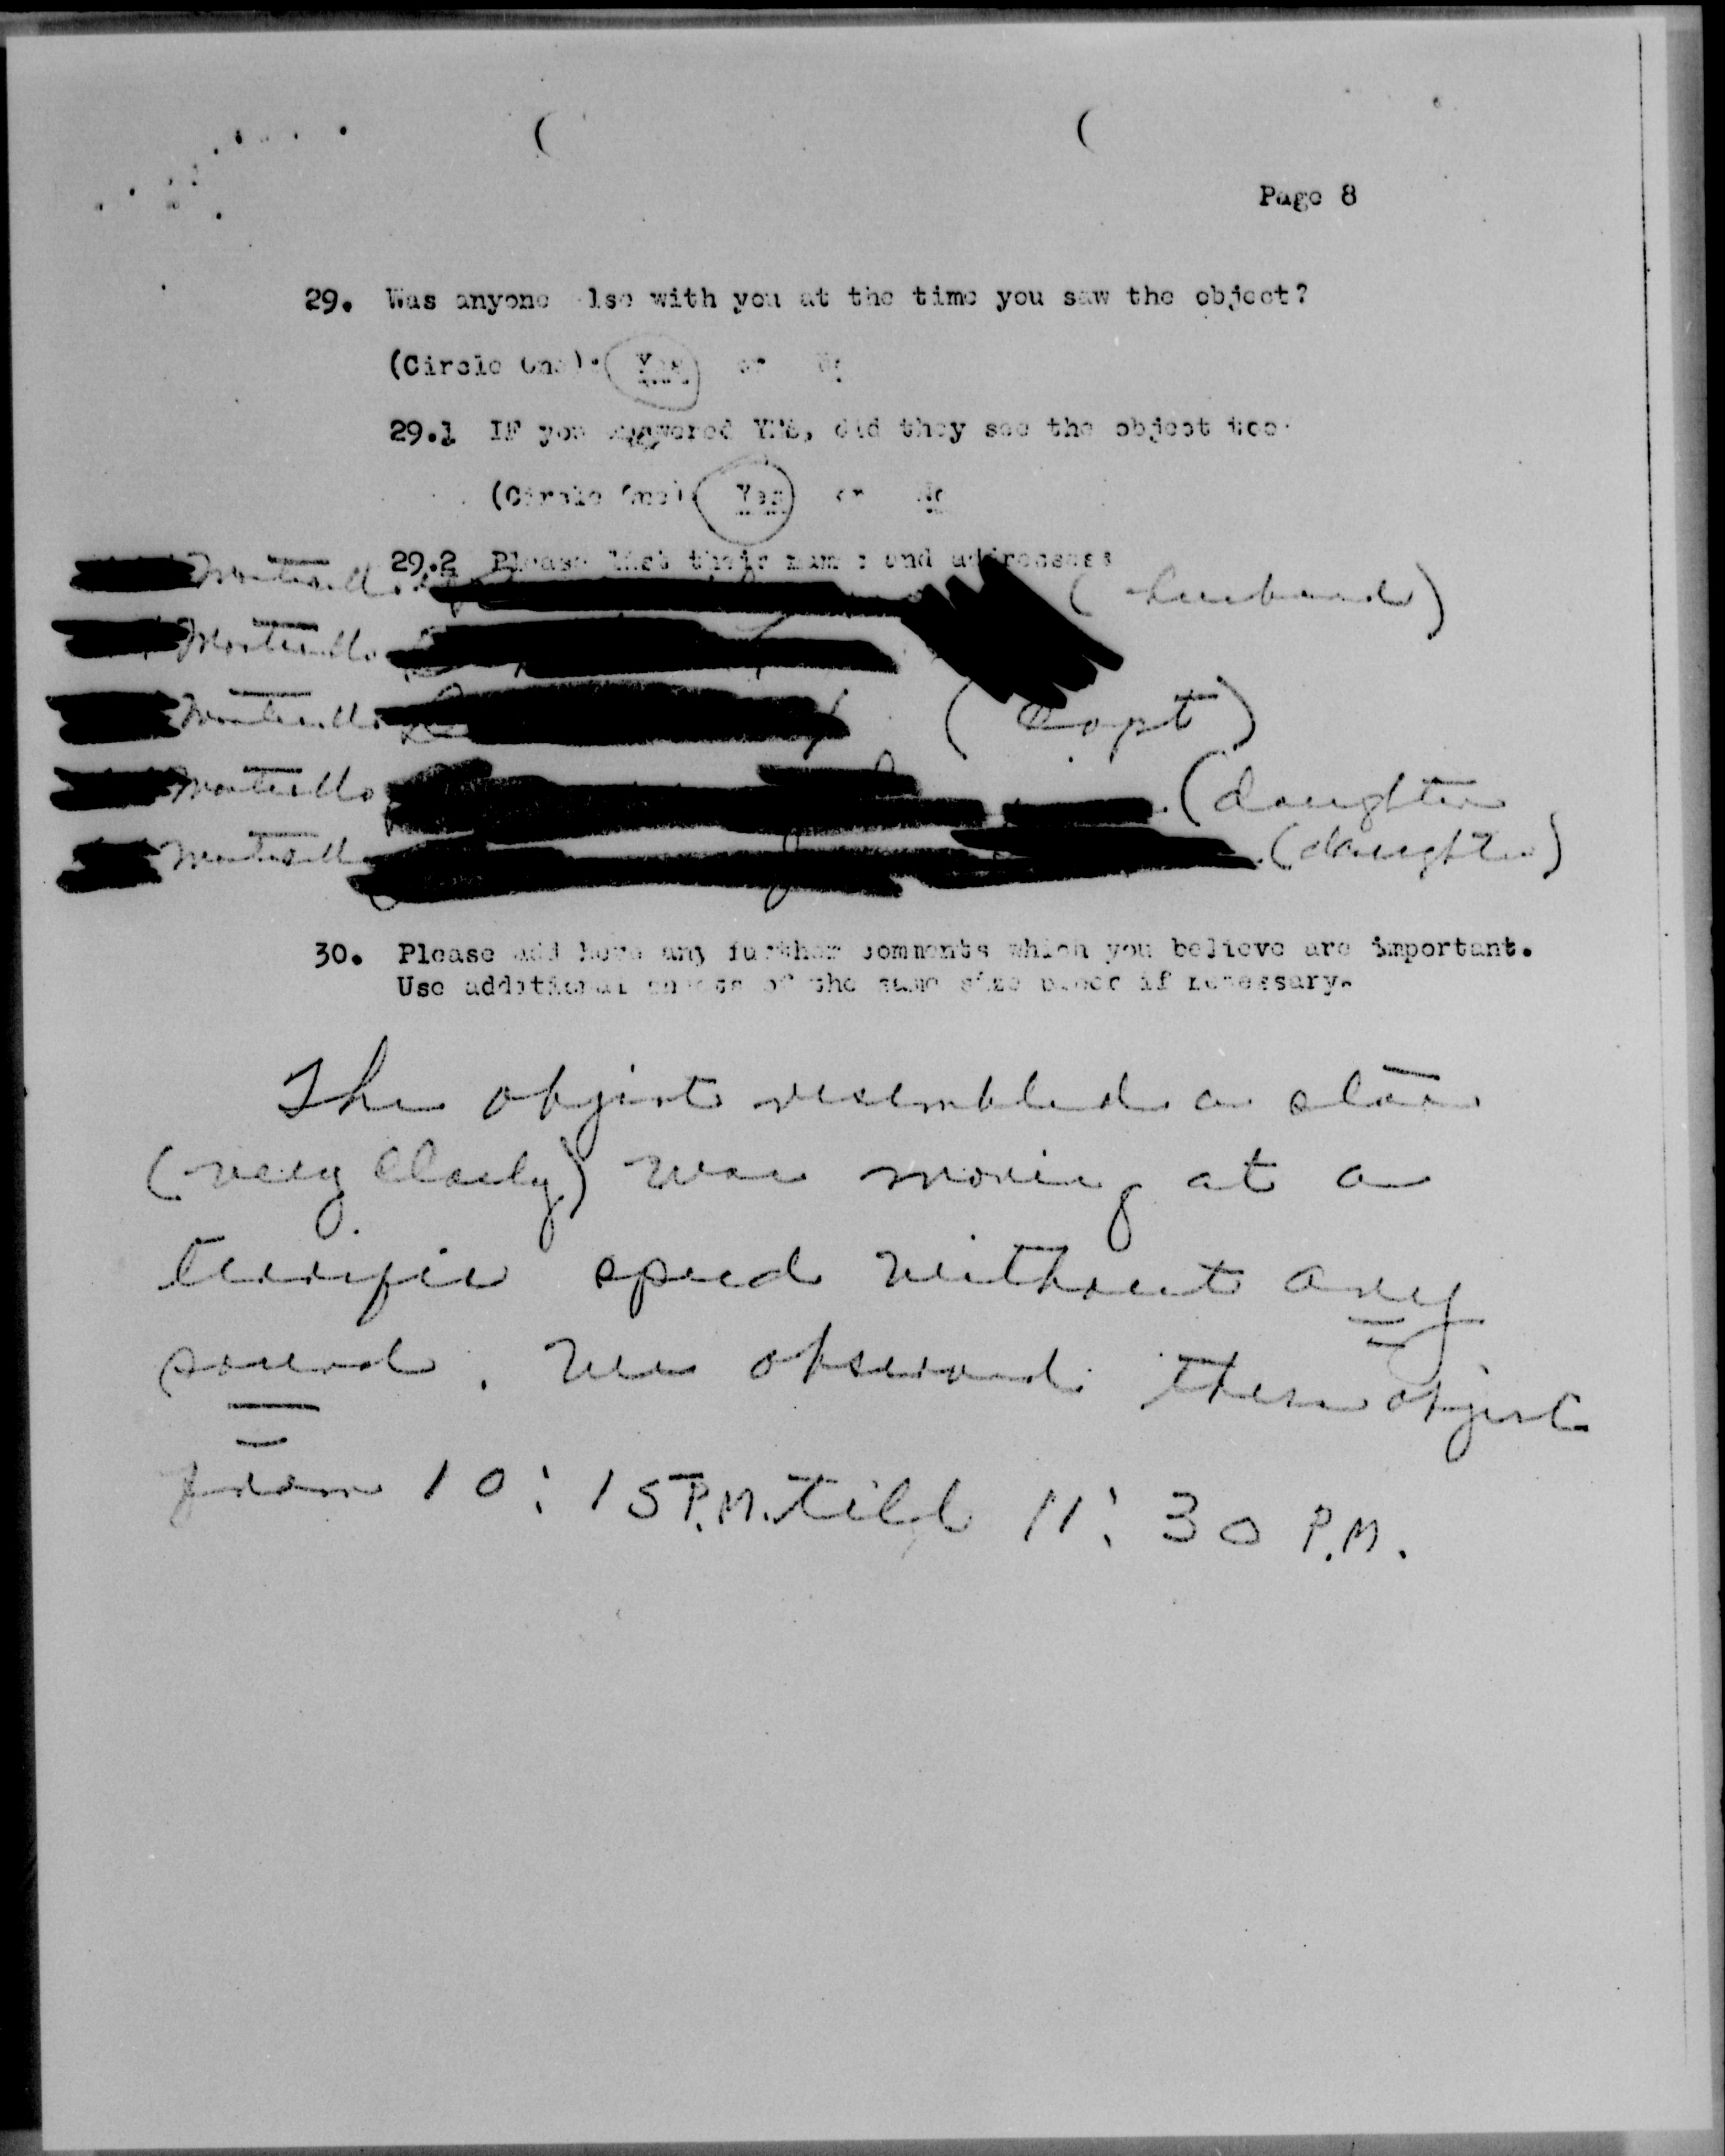 Page 8
29. Was anyone else with you at the time you saw the object?
(Circle One): Yes or No
29.1 IF you answered YES, did they see the object too?
(Circle One) Yes or No
29.2 Please list their names and addresses
Monticello (husband)
Monticello
Monticello (Capt)
Monticello (daughter
Monticello (daughter)
30. Please add here any further comments which you believe are important.
Use additional sheets of the same size paper if necessary.
The object resembled a star
(very closely) was moving at a
terrific speed without any
sound. We observed these object
from 10:15 P.M. till 11:30 P.M.